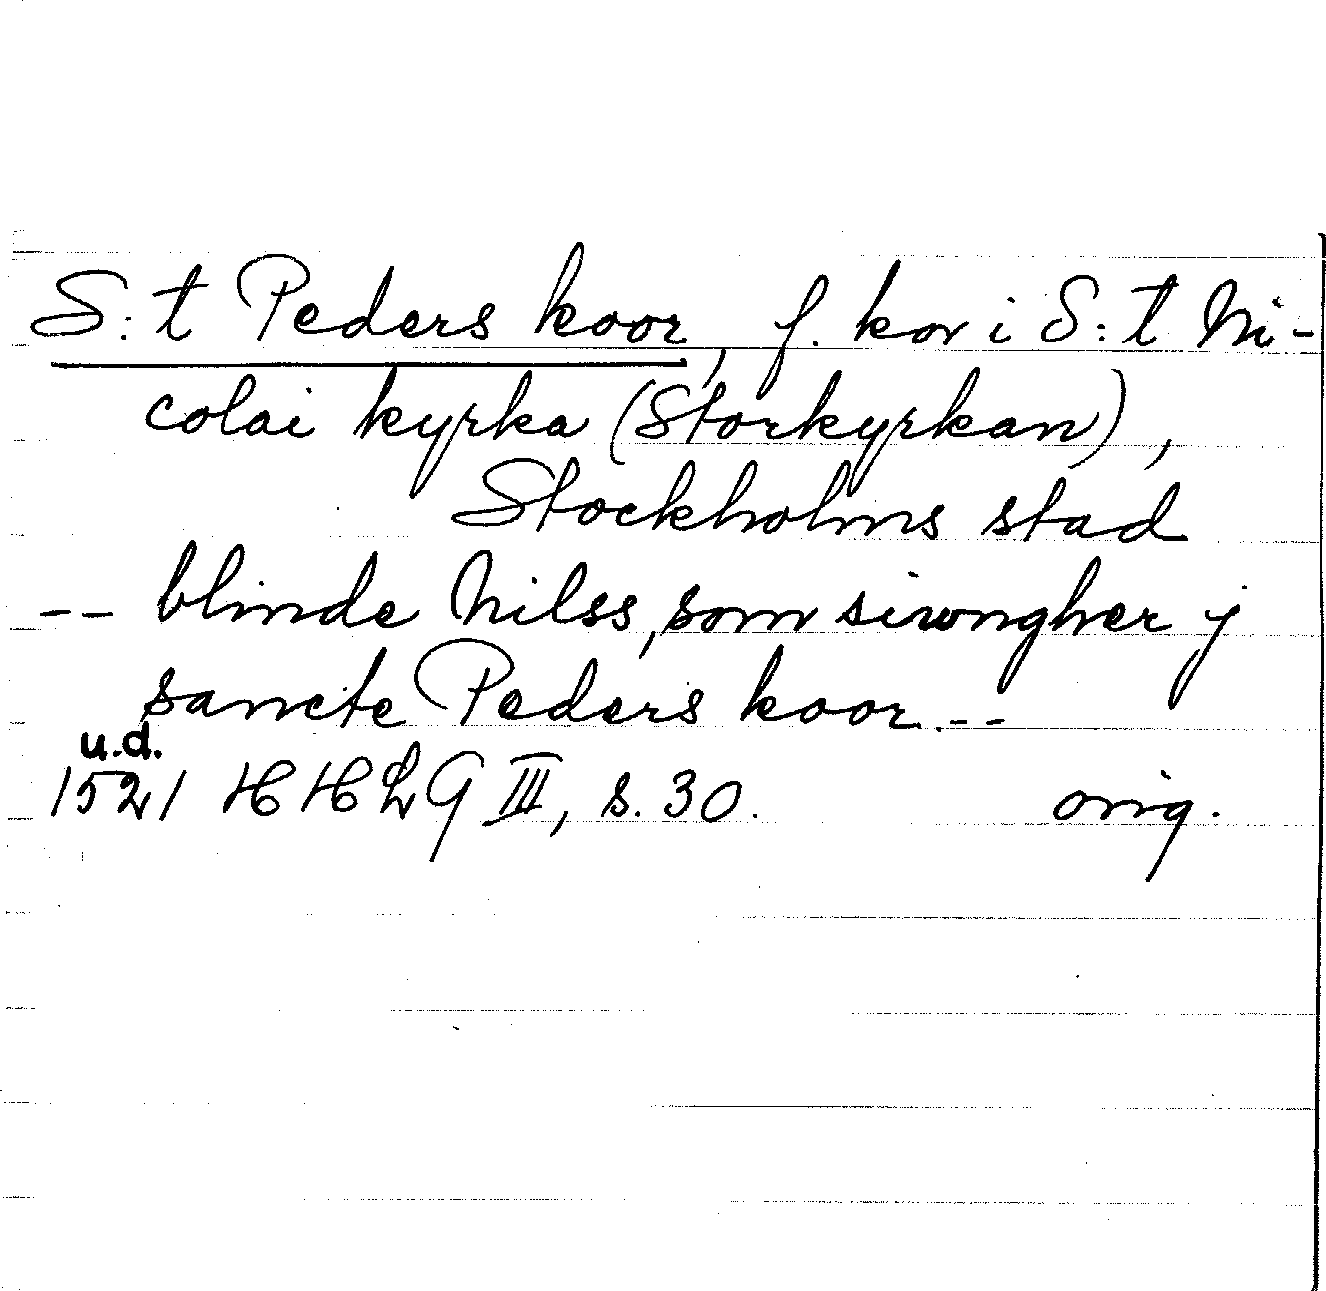 S:t Peders koor, f. kor i S:t Ni-
colai kyrka (Storkyrkan),
Stockholms stad
-- blinde Nilss, som siwngher j
sancte Peders koor.--
u.d.
1521 HHLG III, s. 30. orig.